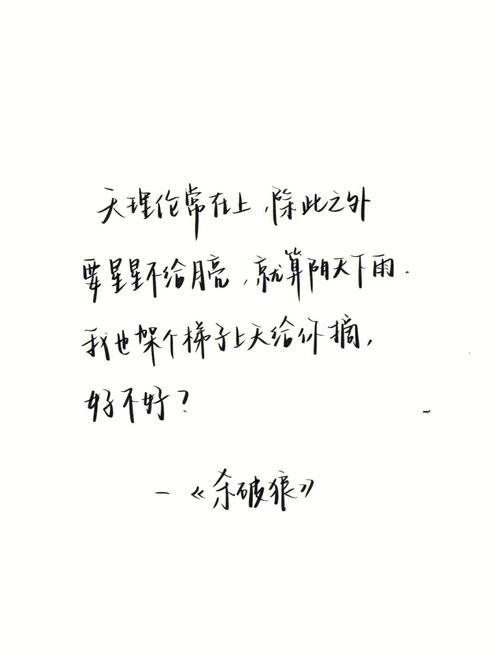 天理伦常在上，除此之外
要星星不给月亮，就算阴天下雨.
我也架个梯子上天给你摘，
好不好？
－《杀破狼》